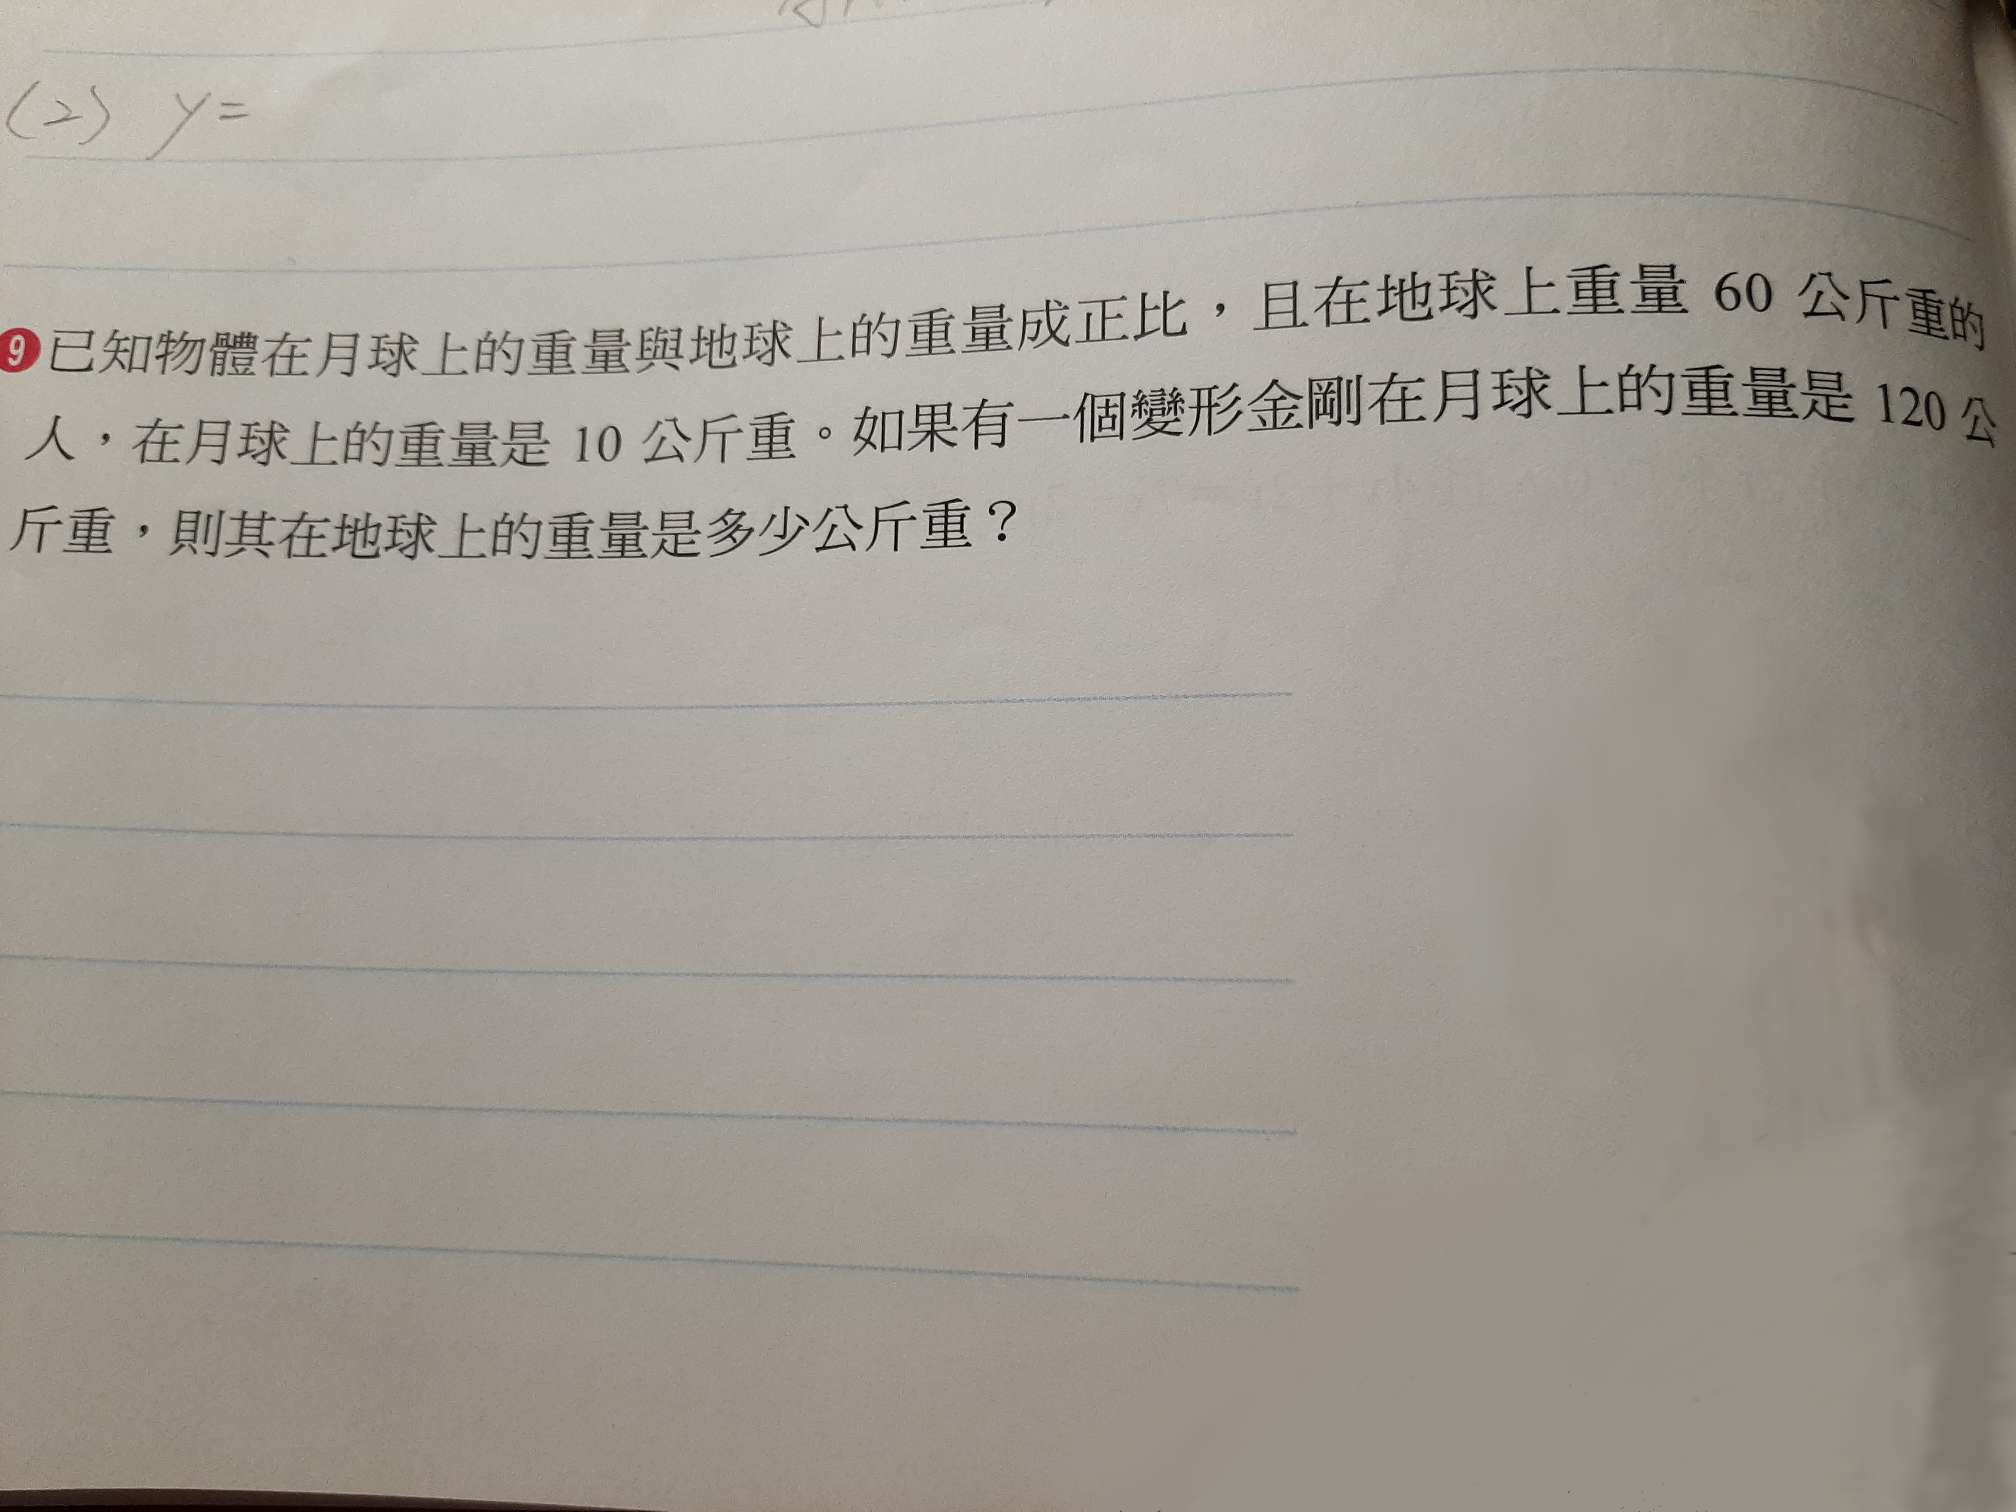 (2) y=
9 已知物體在月球上的重量與地球上的重量成正比，且在地球上重量 60 公斤重的
人，在月球上的重量是 10 公斤重。如果有一個變形金剛在月球上的重量是 120 公
斤重，則其在地球上的重量是多少公斤重？